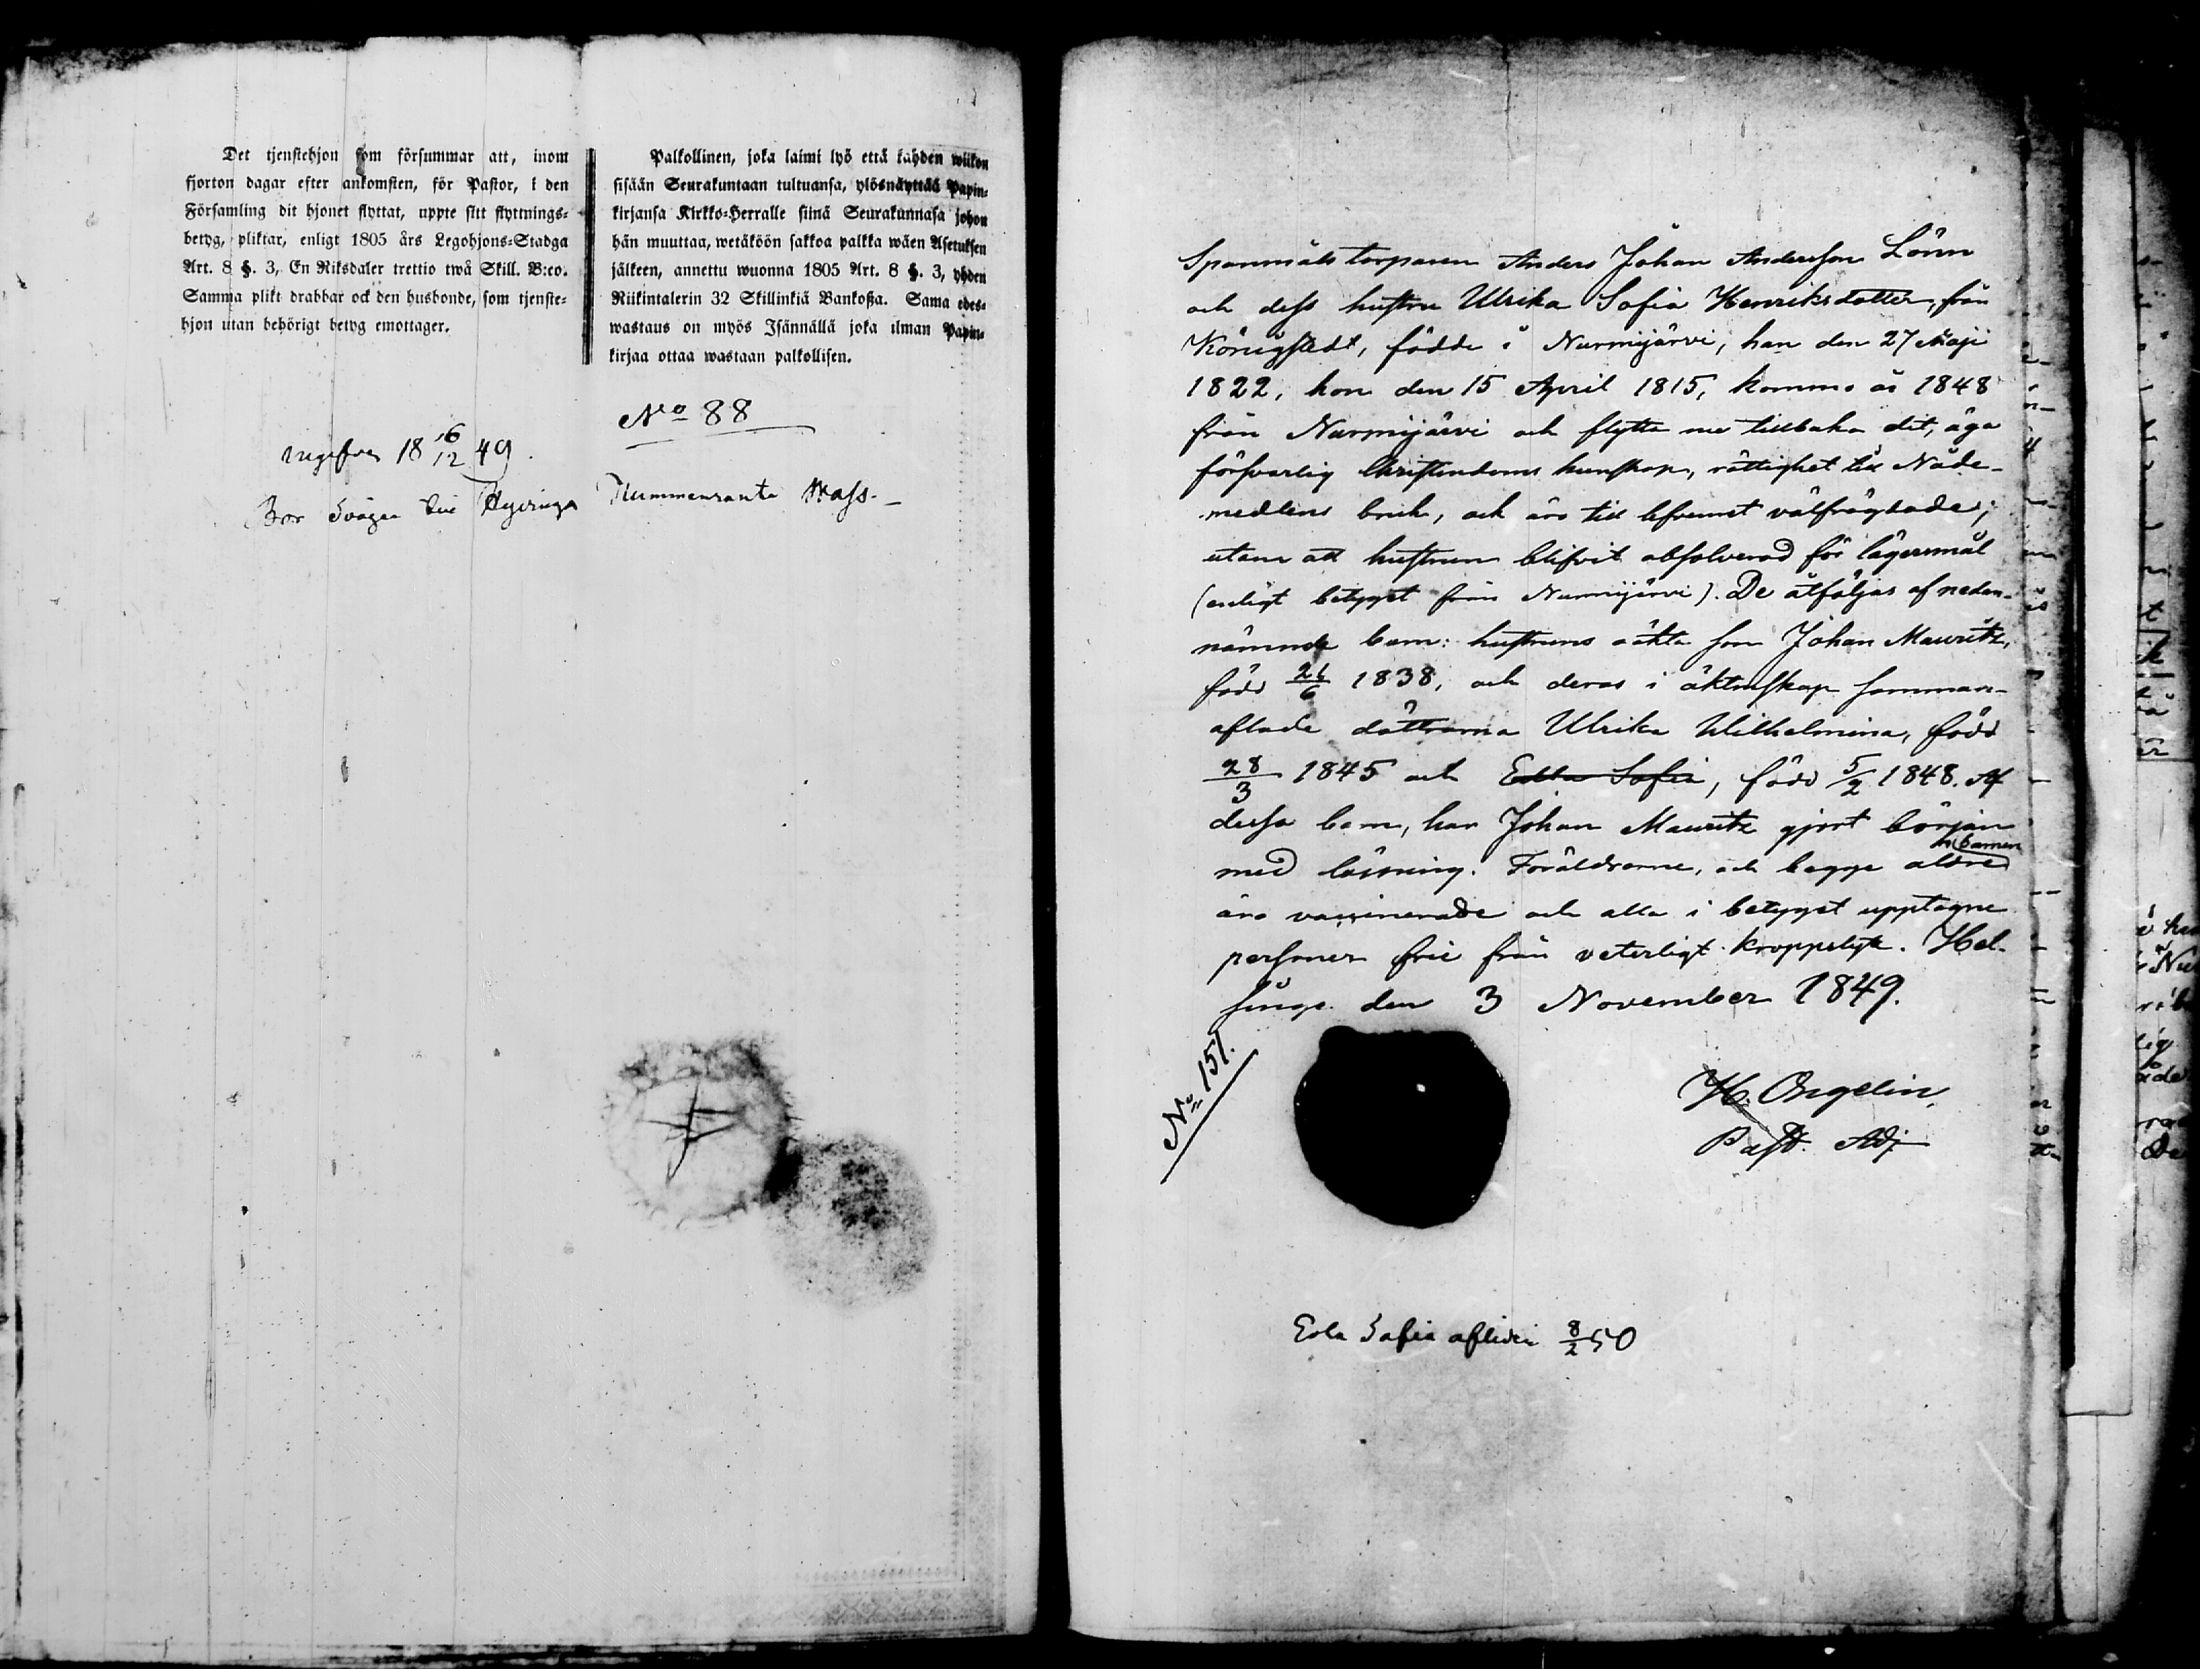 Det tjenstehjon som försummar att, inom
fjorton dagar efter ankomsten, för Pastor, i den
Församling dit hjonet flyttat, uppte sitt flyttnings-
betyg, pliktar, enligt 1805 års Legohjons-Stadga
Art. 8 §. 3, En Riksdaler trettio twå Skill. B:co.
Samma plikt drabbar ock den husbonde, som tjenste-
hjon utan behörigt betyg emottager.
Palkollinen, joka laimi lyö että kahden wiikon
sisään Seurakuntaan tultuansa, ylösnäyttää Papin-
kirjansa Kirkko-Herralle siinä Seurakunnasa johon
hän muuttaa, wetäköön sakkoa palkka wäen Asetuksen
jälkeen, annettu wuonna 1805 Art. 8 §. 3, yhden
Riikintalerin 32 Skillinkiä Bankoßa. Sama edes-
wastaus on myös Isännällä joka ilman Papin-
kirjaa ottaa wastaan palkollisen.
No 88
18 16/12 49.
Bor
Spanmåls torparen Anders Johan Andersson Lönn
och dess hustru Ulrika Sofia Henriksdotter, från
Königstedt, födde i Nurmijärvi, han den 27 Maji
1822, hon den 15 April 1815, kommo år 1848
från Nurmijärvi och flytta nu tillbaka dit, äga
försvarlig Christendoms kunskap, rättighet till Nåde-
medlens bruk, och äro till lefvernet välfrägdade;
utom att hustrun blifvit absolverad för lägersmål
(enligt betyget från Nurmijärvi). De åtföljas af nedan-
nämnde barn: hustruns oäkta son Johan Mauritz,
född 26/6 1838, och deras i äktenskap samman-
aflade döttrarna Ulrika Wilhelmina, född
28/3 1845 och Edla Sofia, född 5/2 1848. Af
dessa barn, har Johan Mauritz gjort början
med läsning. Föräldrarne, och begge äldre barnen
äro vaccinerade och alla i betyget upptagne
personer frie från veterligt kroppslyte. Hel-
singe den 3 November 1849.
No 151.
H. Ongelin,
Past. Adj
Edla Sofia afliden 8/2 50